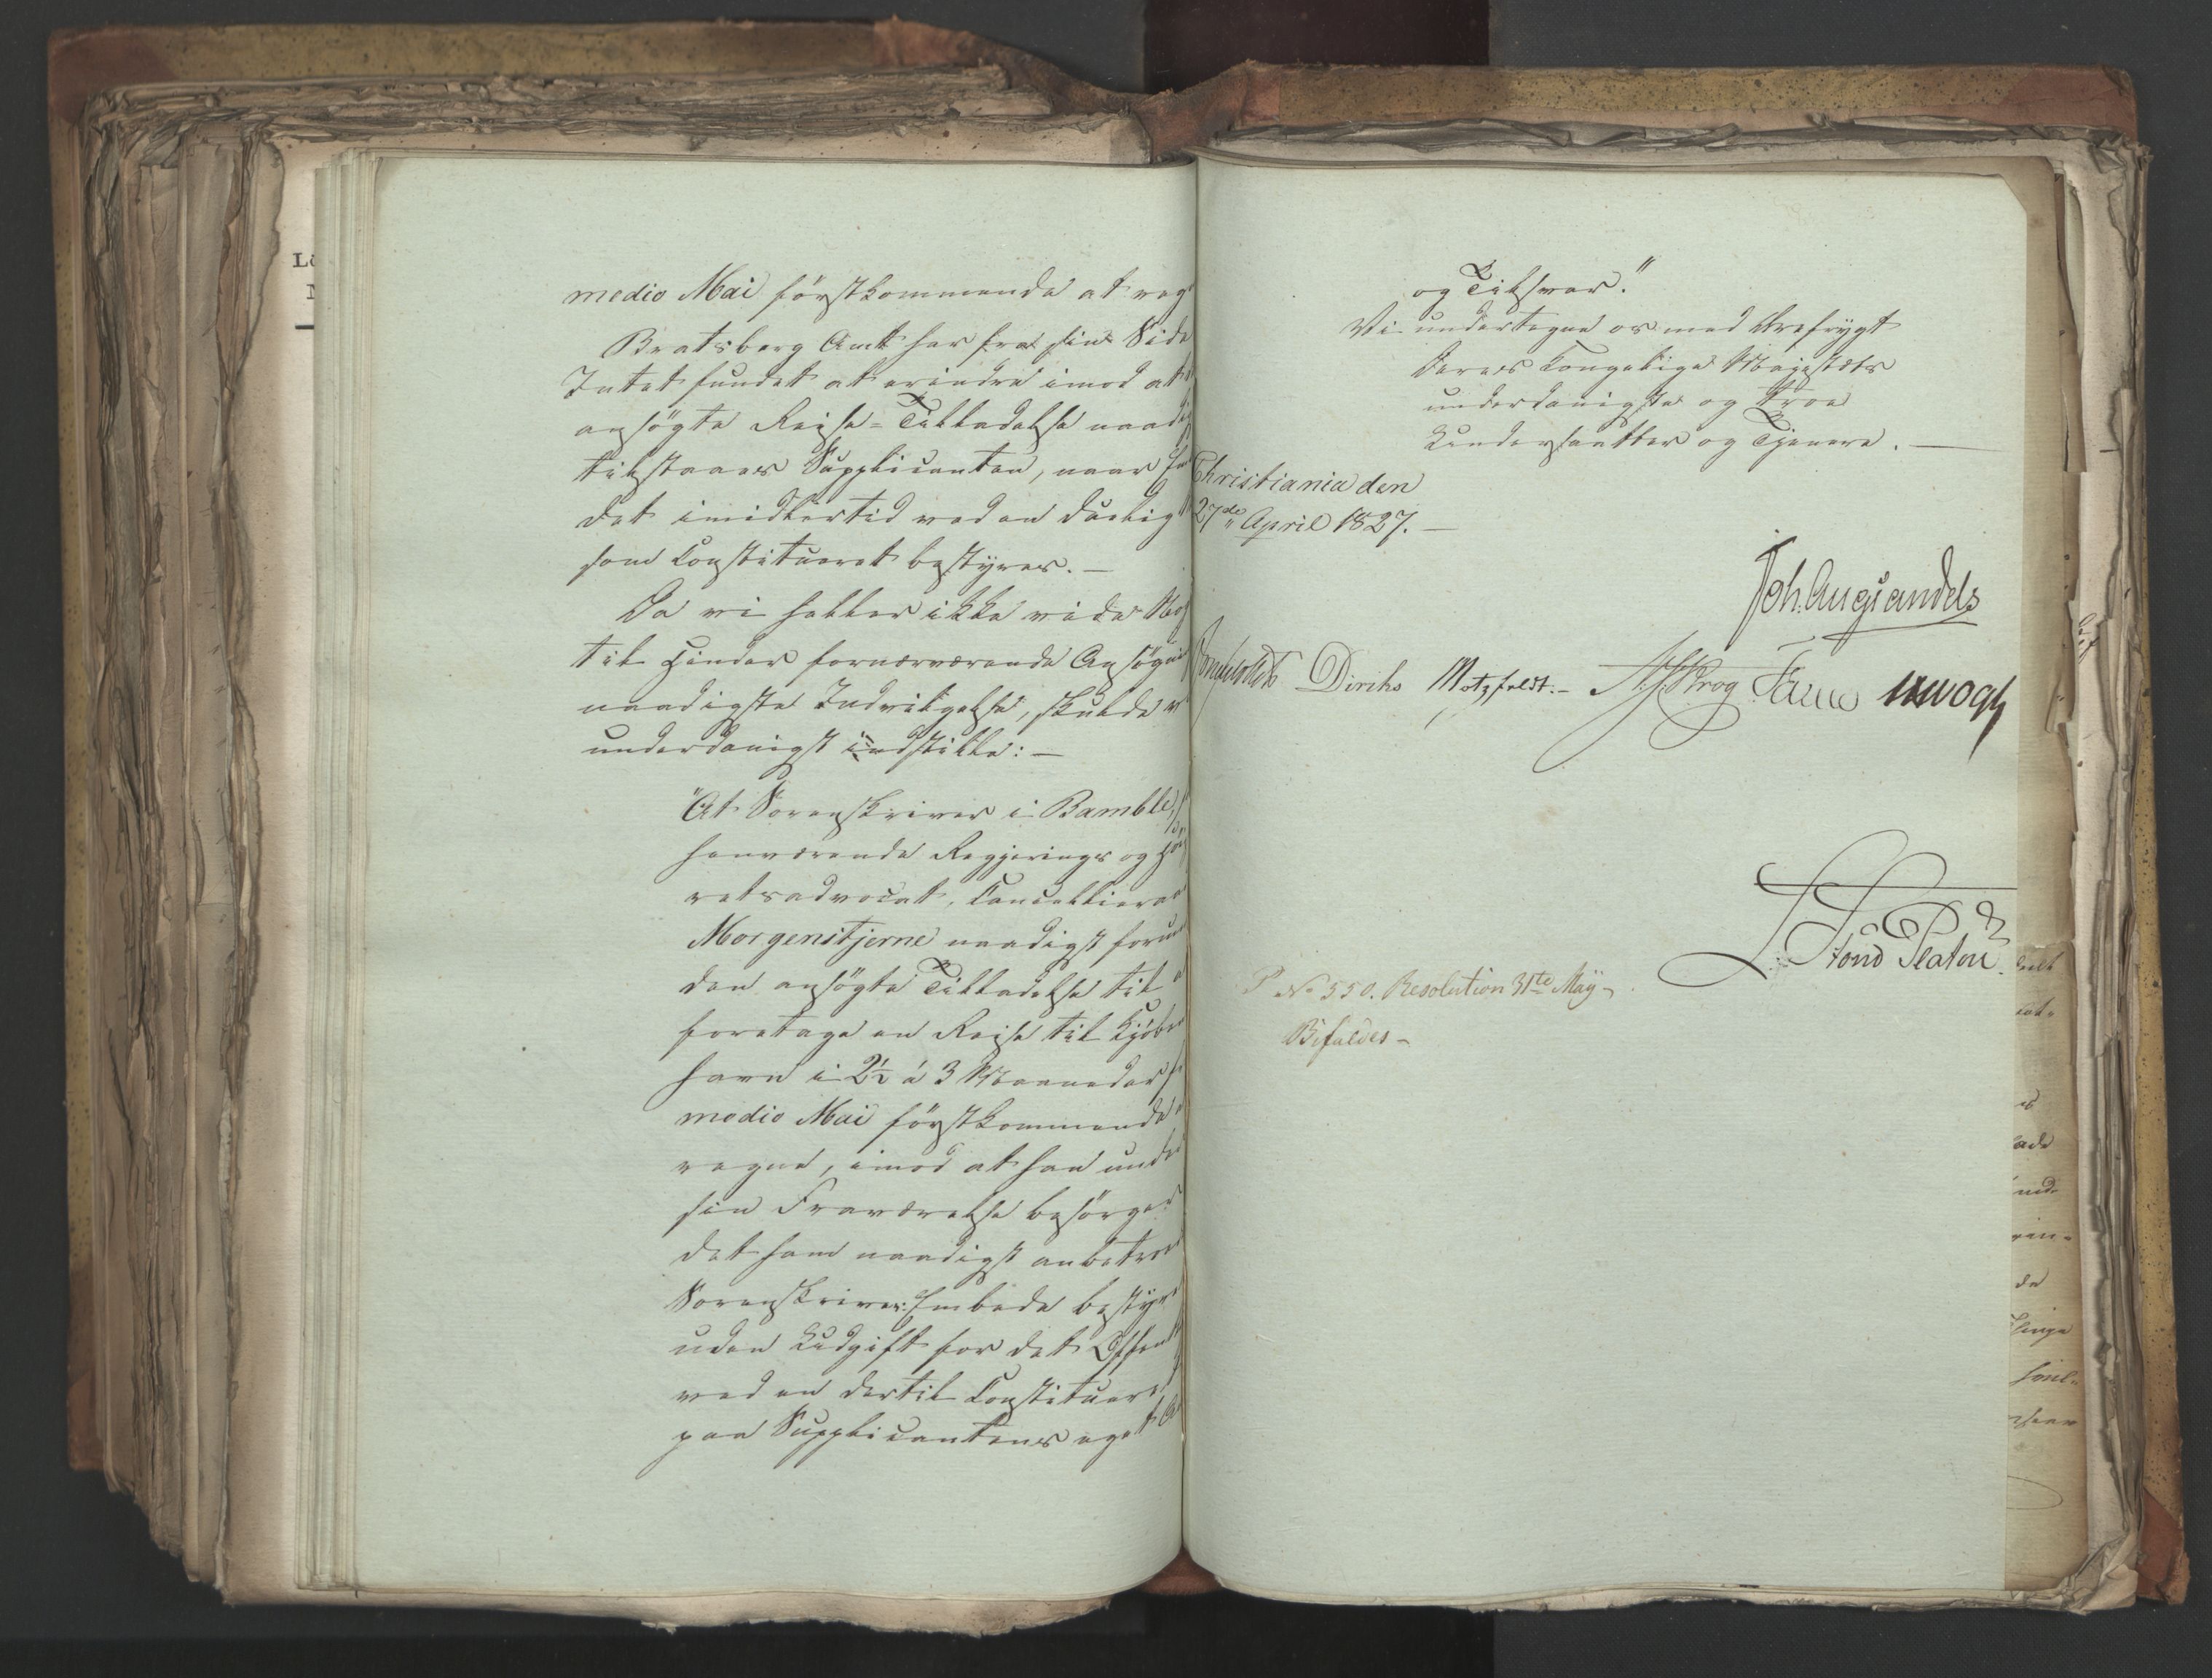 medio Mai förstkommende at reg
Bratsberg Amt har fra sin Side
Intet fundet at erindre imod at
ansögte Reise-Tilladelse naadi
tilstaaes Supplicanten, naar
det imidlertid ved en duelig
som Constitueret bestyres. —
Da vi heller ikke vide Nog
til Hinder for nærværende Ansögni
naadigste Indvilgelse, skulde v
underdanigst indstille: —
"At Sorenskriver i Bamble,
henværende Regjerings og Höie
retsadvocat, Cancelliera
Morgenstjerne naadigst forun
den ansögte Tilladelse til a
foretage en Reise til Kjöben
havn i 2½ à 3 Maaneder f
medio Mai förstkommende a
regne, imod at han unde
sin Fraværelse besörger
det ham naadigst anbetroe
Sorenskriver-Embede bestyre
uden Udgift for det Offent
ved en dertil Constituere
paa Supplicantens eget A
og Tilsvar."
Vi undertegne os med Ærefrygt
Deres Kongelige Majestæts
underdanigste og troe
Undersaatter og Tjenere. —
Christiania den
27de April 1827. —
Joh. Aug Sandels
Diriks Motzfeldt. — Krog Fasting
P No 550. Resolution 31te Maÿ —
Bifaldes —